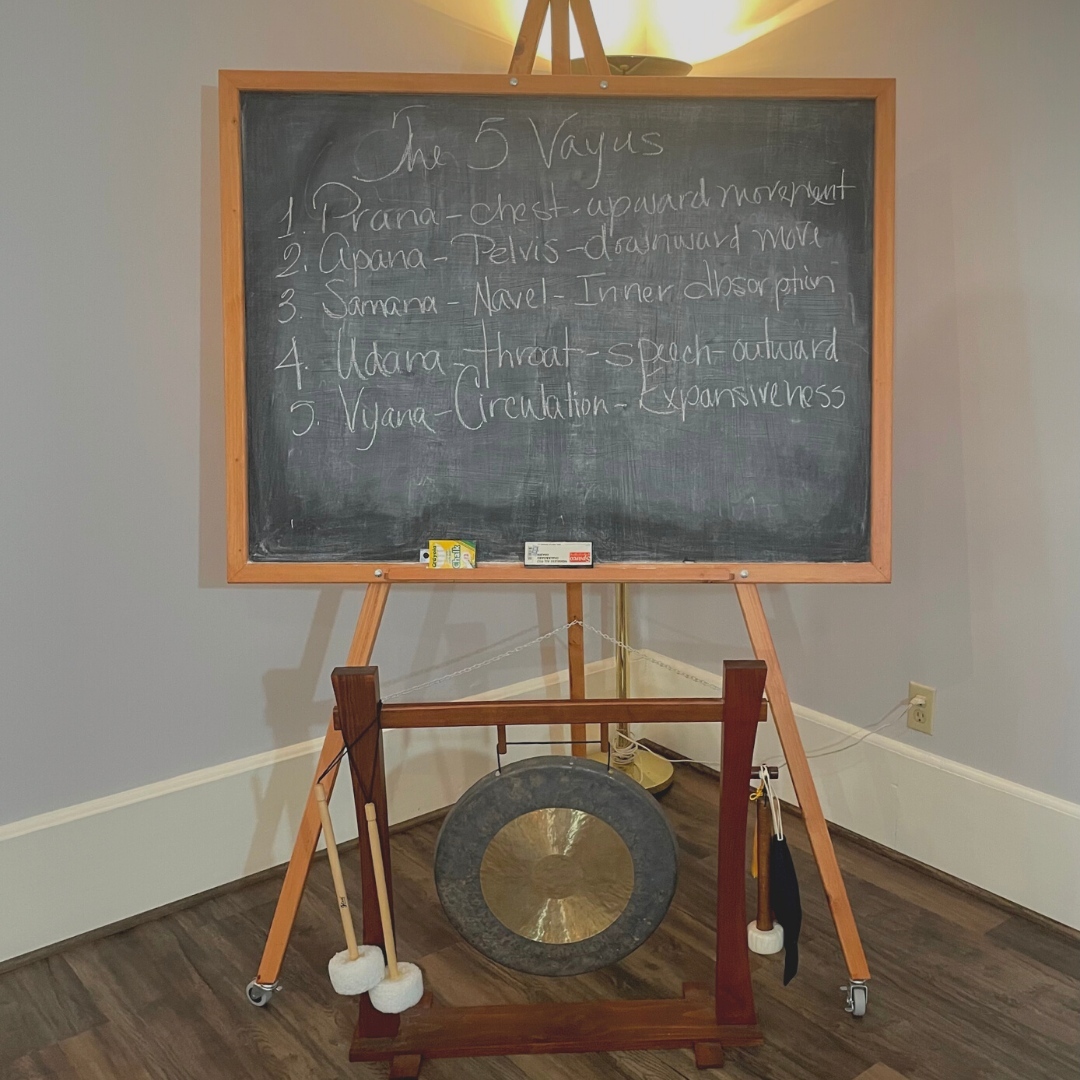 The 5 Vayus
1. Prana - chest - upward movement
2. Apana - Pelvis - downward move
3. Samana - Navel - Inner absorption
4. Udana - throat - speech - outward
5. Vyana - Circulation - Expansiveness
chalk